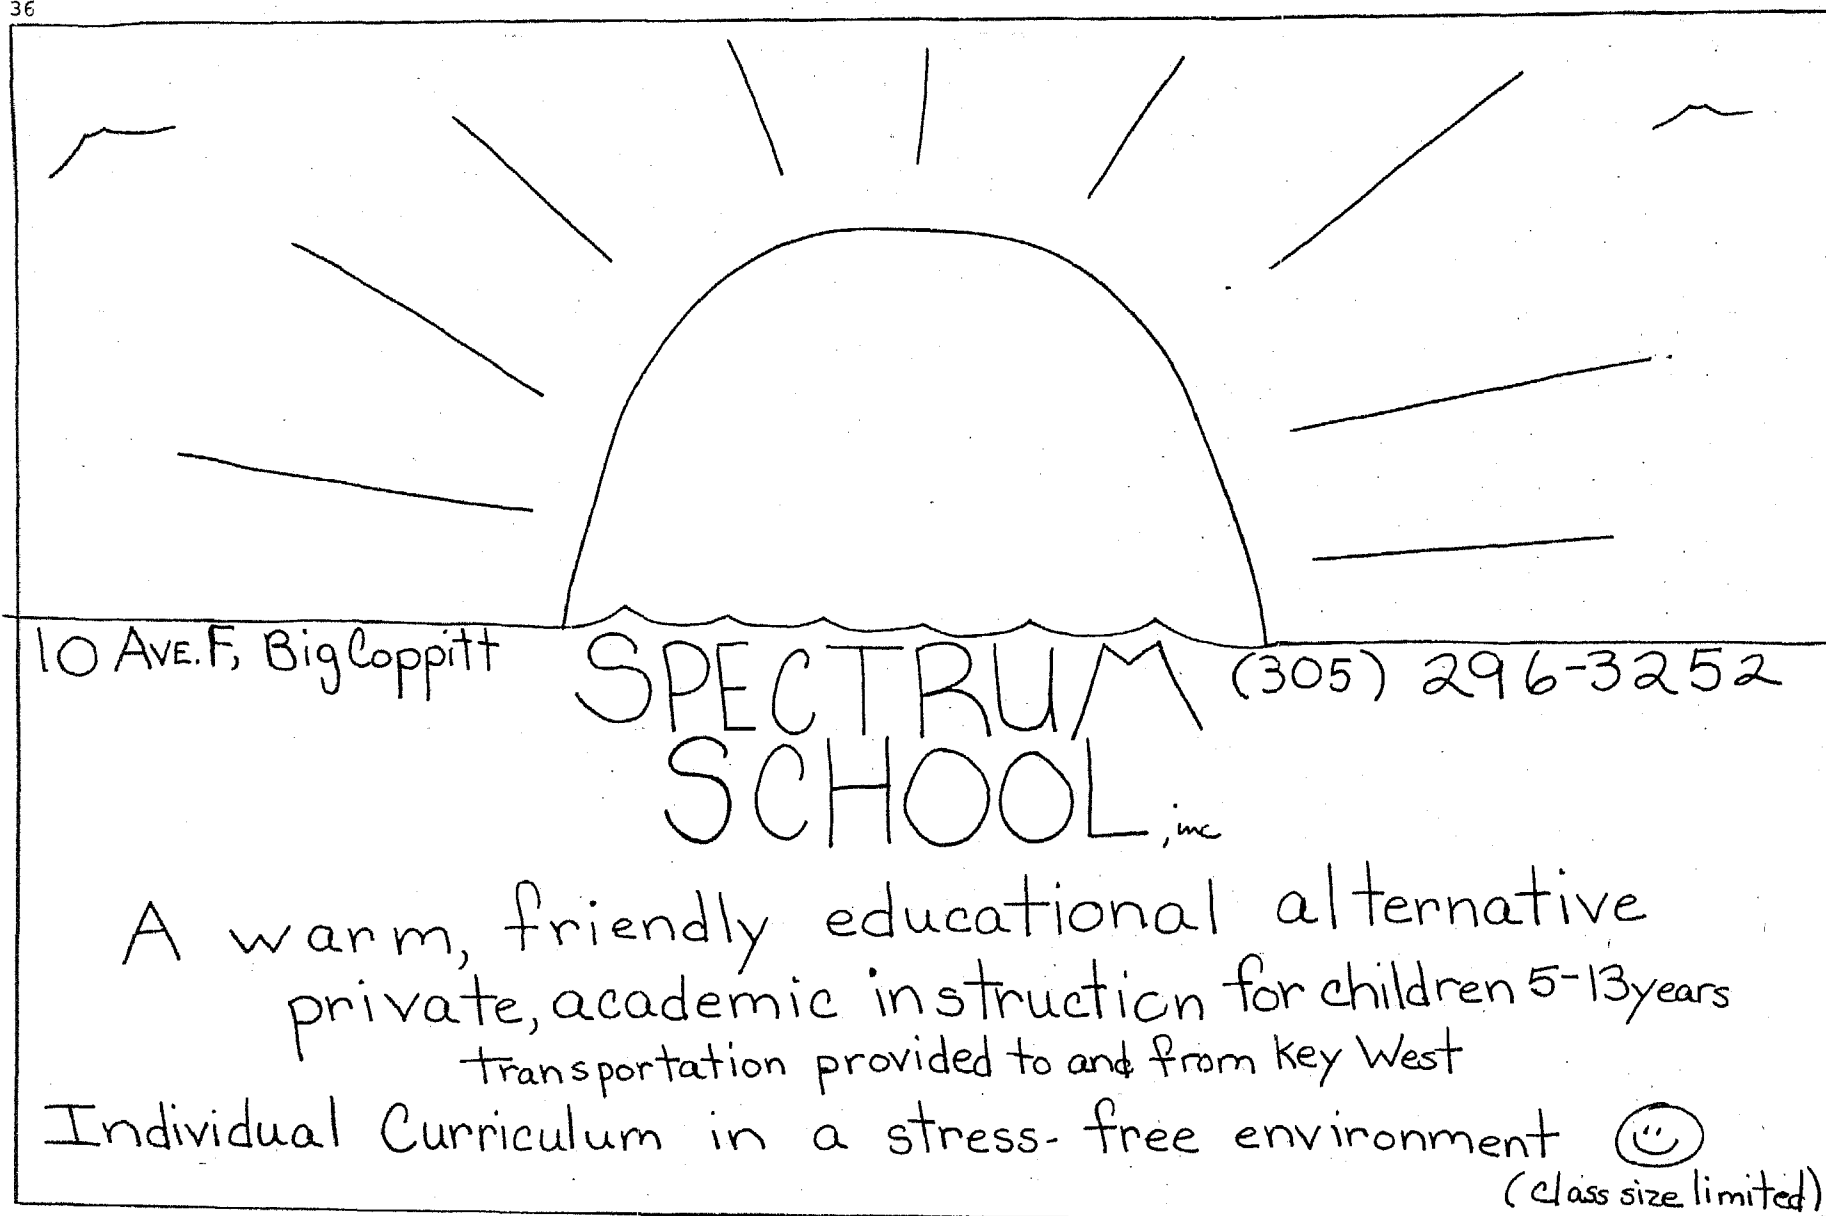 36
10 AVE. F, Big Coppitt
SPECTRUM
(305) 296-3252
SCHOOL, inc
A warm, friendly educational alternative
private, academic instruction for children 5-13 years
transportation provided to and from Key West
Individual Curriculum in a stress-free environment
(class size limited)